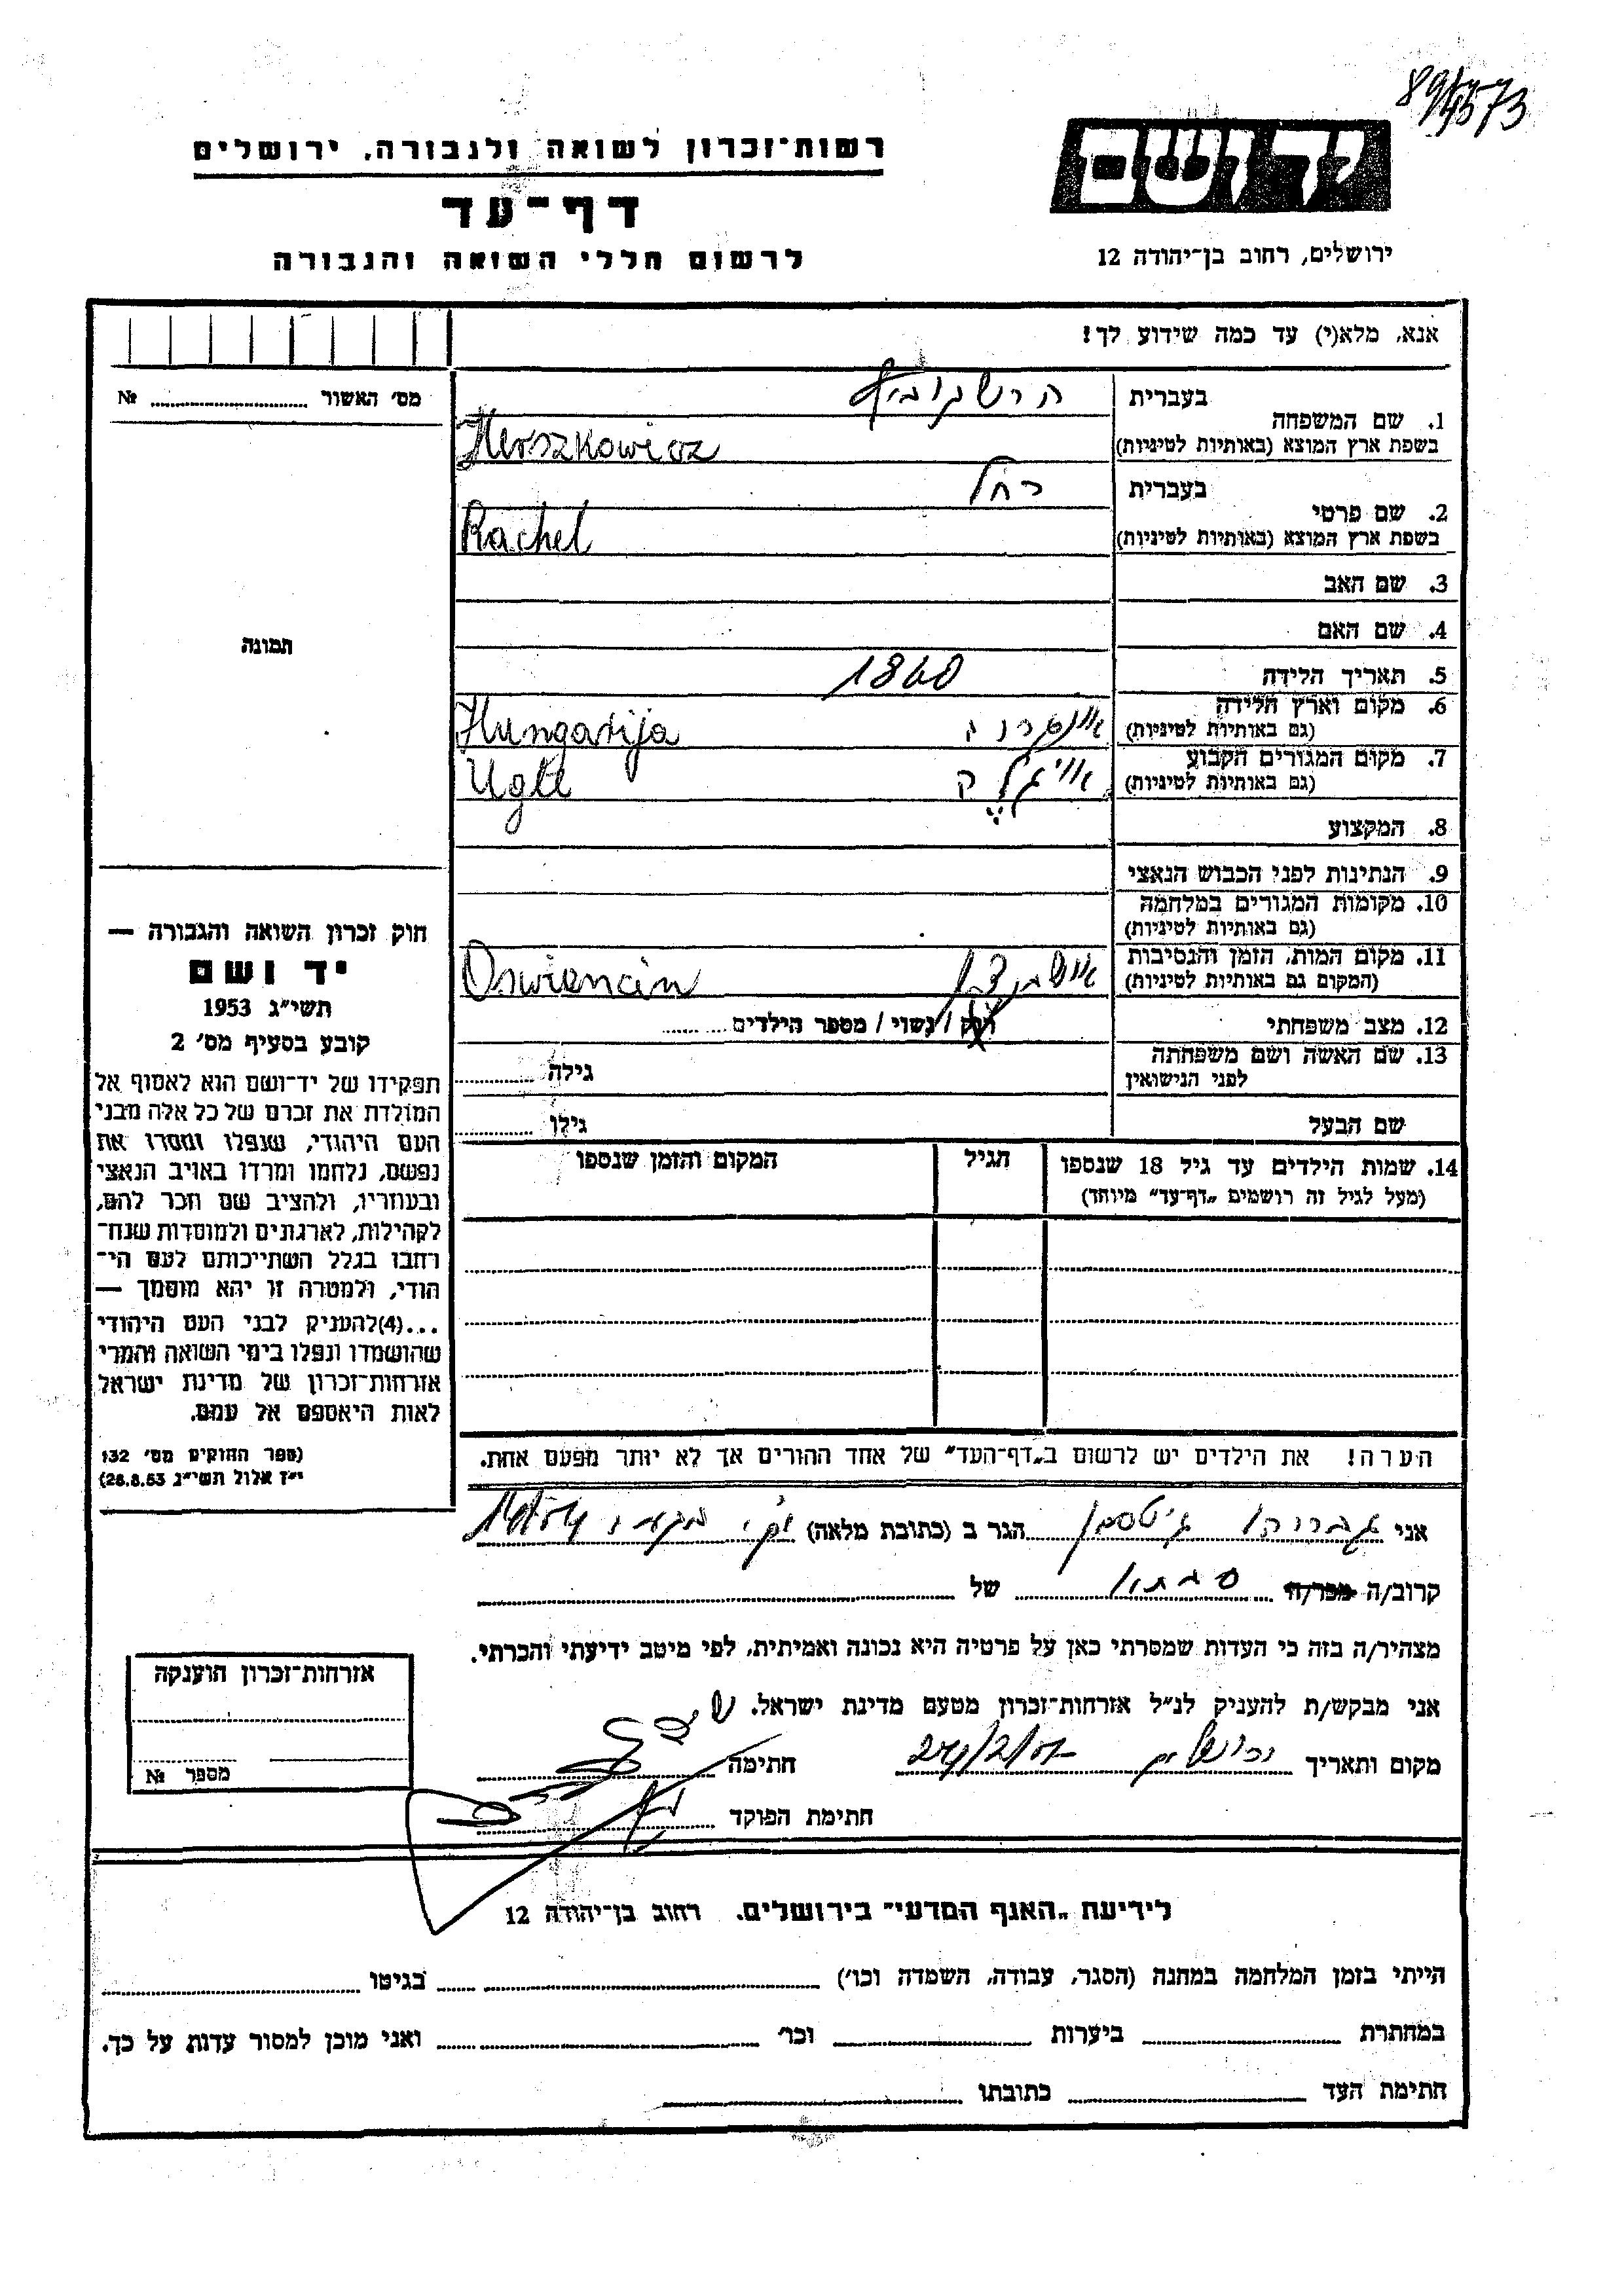 89/4573
רשות־זכרון לשואה ולגבורה, ירושלים
יד ושם
דף־עד
לרשום חללי השואה והגבורה
ירושלים, רחוב בן־יהודה 12
אנא, מלא(י) עד כמה שידוע לך!
מס׳ האשור № 
1. שם המשפחה
בעברית הרשקוביץ
בשפת ארץ המוצא (באותיות לטיניות) Herszkowicz
2. שם פרטי
בעברית רחל
בשפת ארץ המוצא (באותיות לטיניות) Rachel
3. שם האב
4. שם האם
תמונה
5. תאריך הלידה 1860
6. מקום וארץ הלידה
(גם באותיות לטיניות) Hungarija
7. מקום המגורים הקבוע
(גם באותיות לטיניות)
8. המקצוע
9. הנתינות לפני הכבוש הנאצי
10. מקומות המגורים במלחמה
(גם באותיות לטיניות)
11. מקום המות, הזמן והנסיבות
(המקום גם באותיות לטיניות) Oswiencin
12. מצב משפחתי רווק / נשוי / מספר הילדים
13. שם האשה ושם משפחתה
לפני הנישואין גילה
שם הבעל גילו
14. שמות הילדים עד גיל 18 שנספו הגיל המקום והזמן שנספו
(מעל לגיל זה רושמים „דף־עד” מיוחד)
חוק זכרון השואה והגבורה —
יד ושם
תשי״ג 1953
קובע בסעיף מס׳ 2
תפקידו של יד־ושם הוא לאסוף אל
המולדת את זכרם של כל אלה מבני
העם היהודי, שנפלו ומסרו את
נפשם, נלחמו ומרדו באויב הנאצי
ובעוזריו, ולהציב שם וזכר להם,
לקהילות, לארגונים ולמוסדות שנח־
רבו בגלל השתייכותם לעם הי־
הודי, ולמטרה זו יהא מוסמך —
...(4)להעניק לבני העם היהודי
שהושמדו ונפלו בימי השואה והמרי
אזרחות־זכרון של מדינת ישראל
לאות היאספם אל עמם.
(ספר החוקים מס׳ 132
י״ז אלול תשי״ג 28.8.53)
הערה! את הילדים יש לרשום ב„דף־העד” של אחד ההורים אך לא יותר מפעם אחת.
אני הגר ב (כתובת מלאה)
קרוב/ה מכר/ה סבתא של
מצהיר/ה בזה כי העדות שמסרתי כאן על פרטיה היא נכונה ואמיתית, לפי מיטב ידיעתי והכרתי.
אני מבקש/ת להעניק לנ״ל אזרחות־זכרון מטעם מדינת ישראל.
מקום ותאריך ירושלים חתימה
חתימת הפוקד
אזרחות־זכרון הוענקה
מספר №
לידיעת „האגף המדעי” בירושלים, רחוב בן־יהודה 12
הייתי בזמן המלחמה במחנה (הסגר, עבודה, השמדה וכו׳) בגיטו
במחתרת ביערות וכו׳ ואני מוכן למסור עדות על כך.
חתימת העד כתובתו